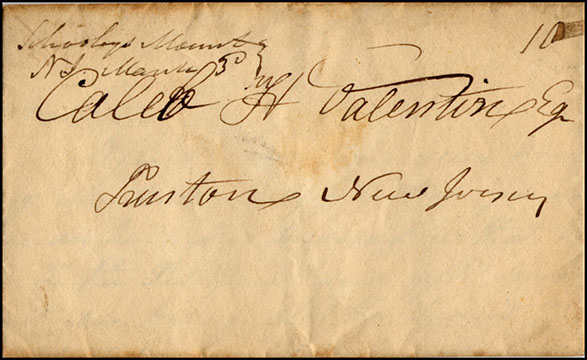 Schooleys Mount
10
N J March 3d
Caleb H Valentine Esq
Trenton New Jersey